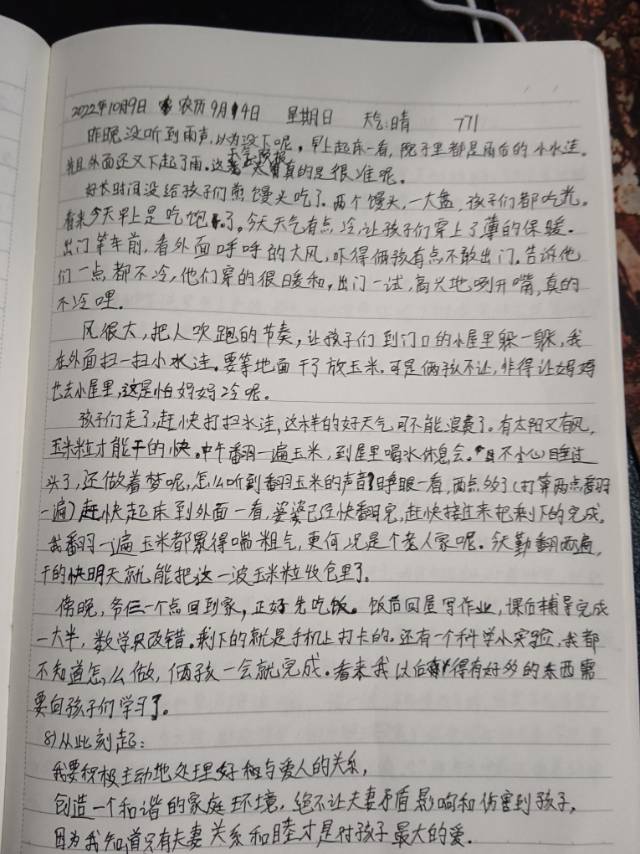 2022年10月9日 农历9月14日 星期日 天气:晴 771
昨晚没听到雨声,以为没下呢,早上起床一看,院子里都是雨后的小水洼,
并且外面还又下起了雨。这天气预报真的是很准呢。
好长时间没给孩子们煎馒头吃了。两个馒头,一大盘,孩子们都吃光。
看来今天早上是吃饱了。今天天气有点冷,让孩子们穿上了薄的保暖。
出门等车前,看外面呼呼的大风,吓得俩孩有点不敢出门。告诉他
们一点都不冷,他们穿的很暖和,出门一试,高兴地咧开嘴,真的
不冷哩。
风很大,把人吹跑的节奏,让孩子们到门口的小屋里躲一躲,我
在外面扫一扫小水洼。要等地面干了放玉米,可是俩孩不让,非得让妈妈
也去小屋里,这是怕妈妈冷呢。
孩子们走了,赶快打扫水洼,这样的好天气可不能浪费了。有太阳又有风,
玉米粒才能干的快。中午翻一遍玉米,到屋里喝水休息会。一不小心睡过
头了,还做着梦呢,怎么听到翻玉米的声音?睁眼一看,两点多了(打算两点翻
一遍)赶快起床到外面一看,婆婆已经快翻完,赶快接过来把剩下的完成。
我翻一遍玉米都累得喘粗气,更何况是个老人家呢。今天勤翻两遍,
干的快明天就能把这一波玉米粒收仓里了。
傍晚,爷仨一个点回到家,正好先吃饭。饭后回屋写作业,课后辅导完成
一大半,数学只改错。剩下的就是手机上打卡的。还有一个科学小实验,我都
不知道怎么做,俩孩一会就完成。看来我以后得有好多的东西需
要向孩子们学习了。
8)从此刻起:
我要积极主动地处理好和与爱人的关系,
创造一个和谐的家庭环境,绝不让夫妻矛盾影响和伤害到孩子,
因为我知道只有夫妻关系和睦才是对孩子最大的爱.